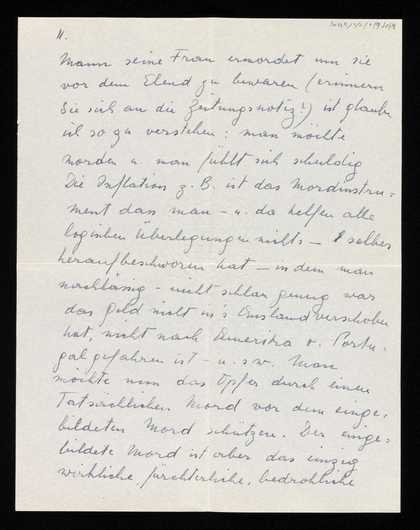 II.
Mann seine Frau ermordet um sie
vor dem Elend zu bewahren (erinnern
Sie sich an die Zeitungsnotiz!) ist glaube
ich so zu verstehen: man möchte
morden u. man fühlt sich schuldig
Die Inflation z. B. ist das Mordinstru-
ment dass man - u. da helfen alle
logischen Überlegungen nichts - selber
heraufbeschworen hat - in dem man
nachlässig - nicht schlau genug war
das Geld nicht in's Ausland verschoben
hat, nicht nach Amerika o. Portu-
gal gefahren ist - u. s w. Man
möchte nun das Opfer durch einen
Tatsächlichen Mord vor dem einge-
bildeten Mord schützen. Der einge-
bildete Mord ist aber das einzig
wirkliche, fürchterliche, bedrohliche